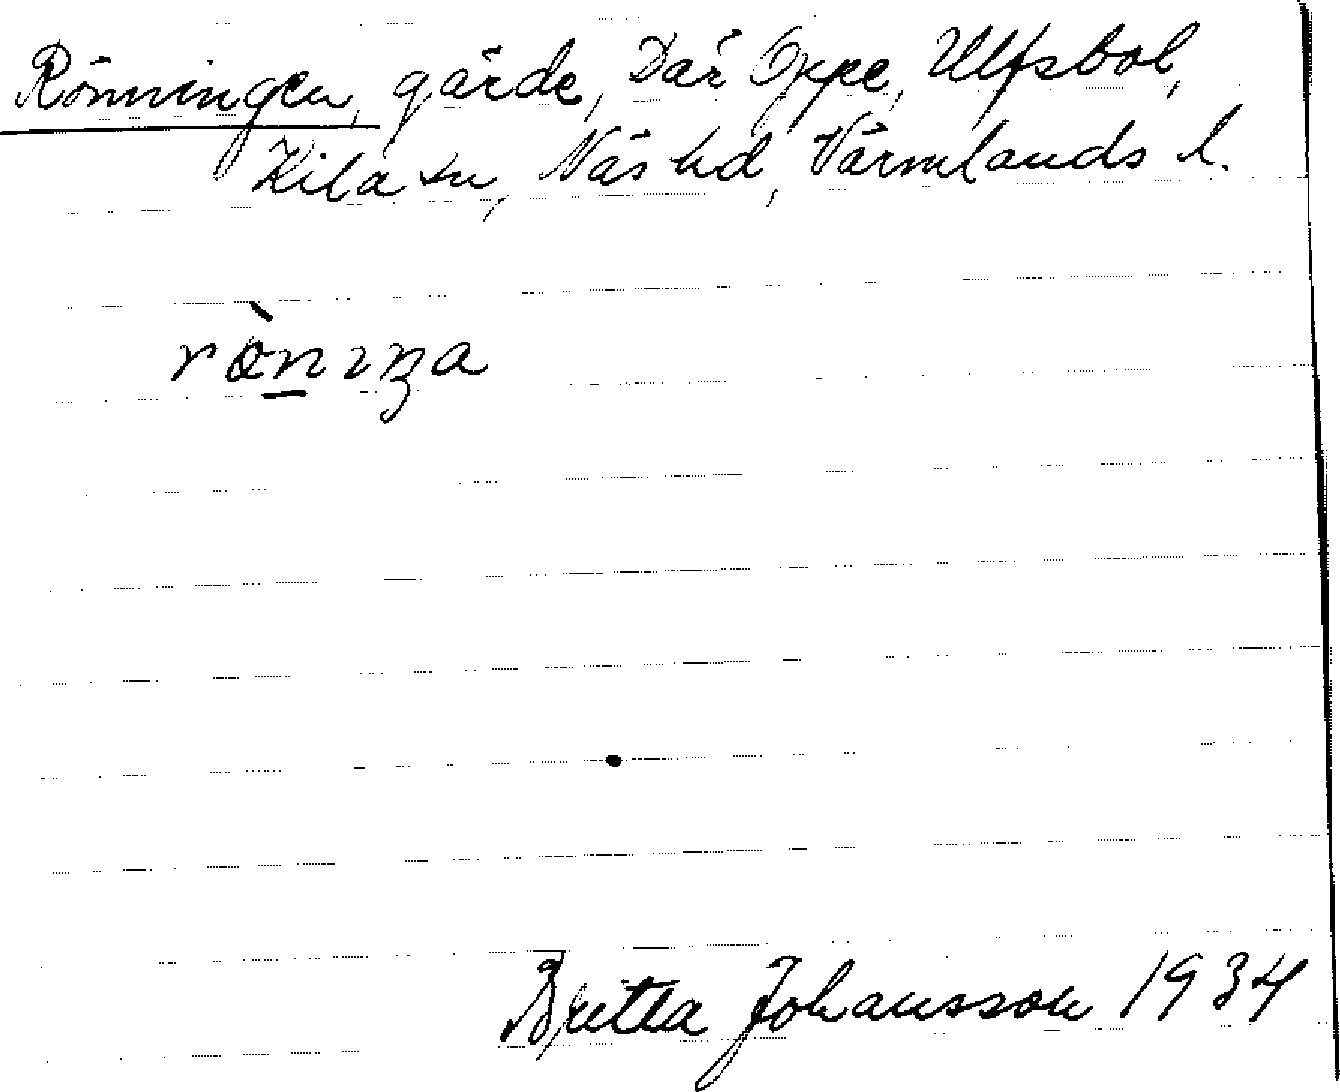 Rönningen, gärde, Där Oppe, Ulfsbol,
Kila sn, Näs hd, Värmlands l.
Britta Johansson 1934